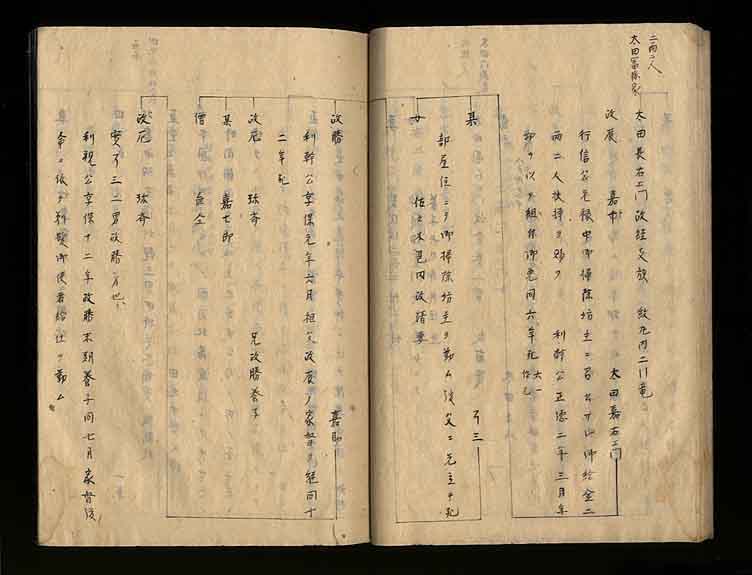 二両二人
太田嘉藤家
太田長右エ門政経支族 紋丸内二川竜
政展 嘉中 太田嘉右エ門
行信公元禄中御掃除坊主ニ召出サレ御給金二
両二人扶持ヲ賜フ 利幹公正徳二年三月年
郎ヲ以テ組抜御免同六年死
某 弓三
部屋住ニテ御掃除坊主ヲ勤ム後父ニ先立チ死
女 佐々木邑内政清妻
政勝 嘉助
利幹公享保元年六月祖父政展ノ家督ヲ継同十
二年死
政居 弥斎 兄政勝養子
某 嘉七郎
僧 自全
政居 弥斎
実弓三二男政勝ノ弟也
利視公享保十二年政勝末期養子同七月家督後
命ニ依テ剃髪御使者給仕ヲ勤ム